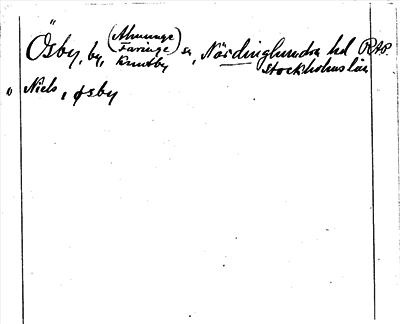 Ösby, by, (Almunge Faringe Knutby) sn, Närdinghundra hd RAP.
Stockholms län
o Niels, øsby